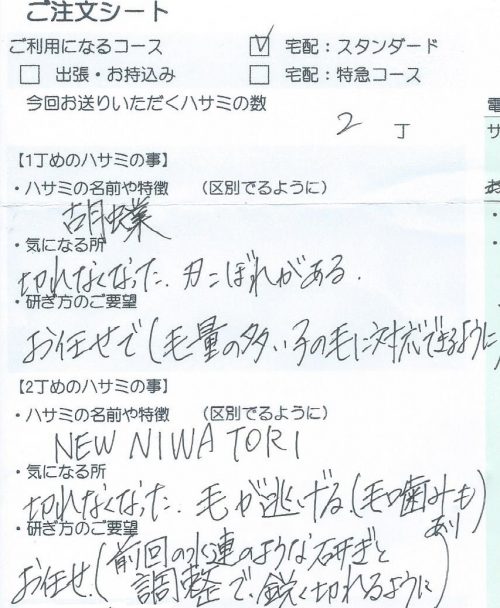 ご注文シート
ご利用になるコース ☑ 宅配：スタンダード
□ 出張・お持込み □ 宅配：特急コース
今回お送りいただくハサミの数
2 丁
【1丁めのハサミの事】
・ハサミの名前や特徴 （区別でるように）
胡蝶
・気になる所
切れなくなった. 刃こぼれがある.
・研ぎ方のご要望
お任せで(毛量の多い子の毛に対応できるように)
【2丁めのハサミの事】
・ハサミの名前や特徴 （区別でるように）
NEW NIWATORI
・気になる所
切れなくなった. 毛が逃げる.(毛噛みも)
あり
・研ぎ方のご要望
お任せ.(前回の水連のような研ぎと
調整で、鋭く切れるように)
電
サ